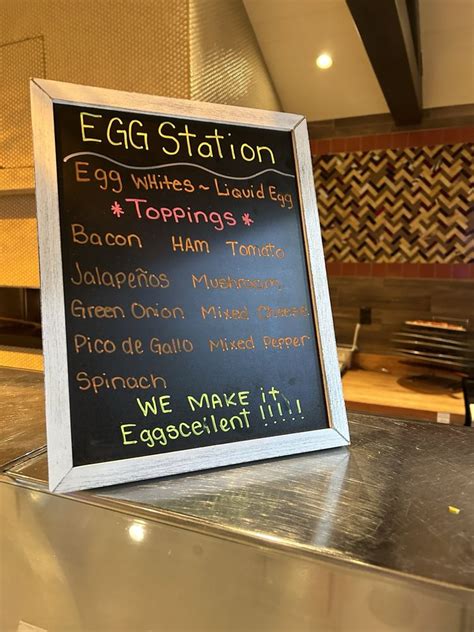 EGG Station
Egg Whites ~ Liquid Egg
* Toppings *
Bacon HAM Tomato
Jalapeños Mushroom
Green Onion Mixed Cheese
Pico de Gallo Mixed Pepper
Spinach
WE MAKE it
Eggscellent !!!!!